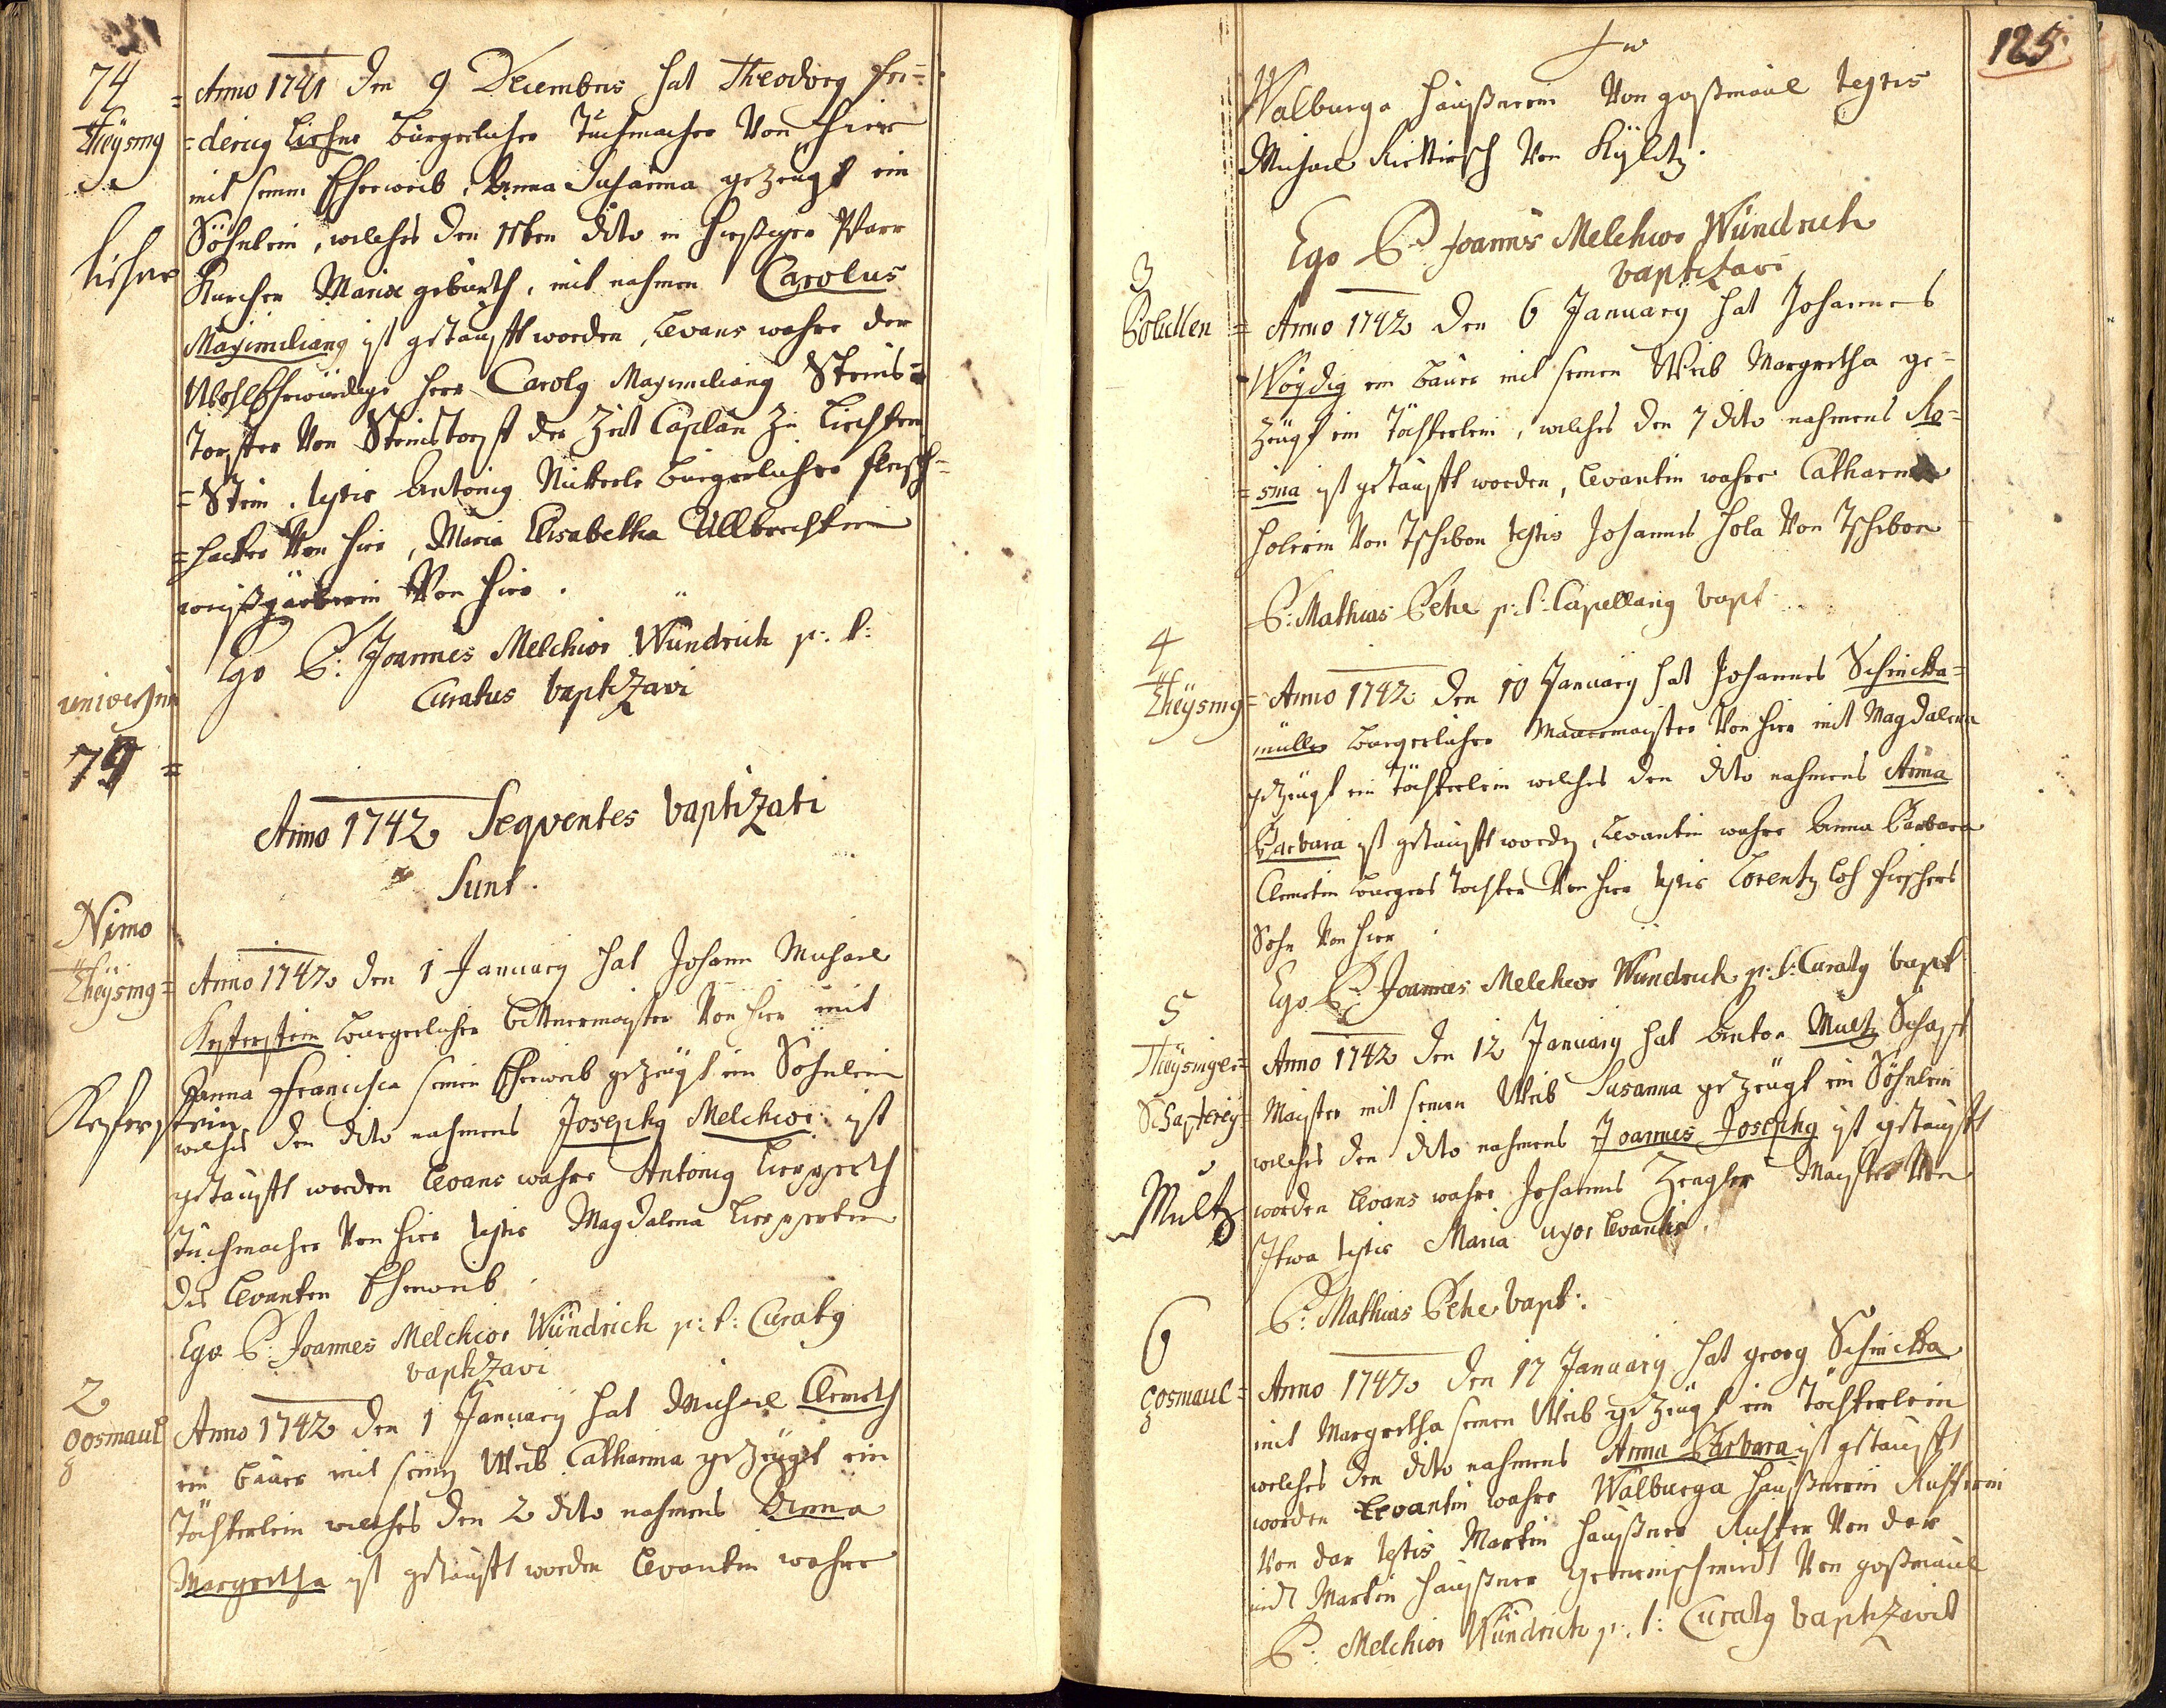 74
Theysing
Anno 1741 den 9 Decembris hat Theodorg fri=
=dericg Lißner bürgerlicher Tuchmacher Von hier
mit seinem Eheweib, Anna Susanna gezeugt ein
Söhnlein, welches den 11ten dito in hiesiger Pfarr
Kirchen Mariæ geburth, mit nahmen Carolus
Maximiliang ist getaufft worden, Levans wahre der
WohlEhrwürdige herr Carolg Maximiliang Steins=
Von der Zeit Caplan zu Liechten
=Stein. testis Antonig bürgerlicher fleisch=
=hacker Von hier, Maria Elisabetha Ullbrechtin
weißgärberin Von hier.
Ego P: Joannes Melchior Wündrich p: t:
Curatus baptizavi
79 =
Anno 1742 Seqventes baptizati
Sunt.
Theysing=
Anno 1742 den 1 January hat Johann Michael
Keferstein burgerlicher bittnermaister Von hier mit
Anna Francisca seinen Eheweib gezeugt ein Söhnlein
Keferstein
welches den dito nahmens Josephg Melchior ist
getaufft worden Levans wahre Antonig
Tuchmacher Von hier testis Magdalena
des Levanten Eheweib.
Ego P: Joannes Melchior Wündrich p: t: Curatg
baptizavi
2
gosmaul
Anno 1742 den 1 January hat Michael Clemeth
ein bauer mit seing Weib Catharina gezeügt ein
Töchterlein welches den 2 dito nahmens Anna
Margretha ist getaufft worden Levantin wahre
125
Walburga haußnerin Von goßmaul testis
Michael Von
Ego P: Joannes Melchior Wündrich
baptizavi
3
Anno 1742 den 6 January hat Johannes
Woydig ein bauer mit seinen Weib Margretha ge=
zeügt ein Töchterlein, welches den 7 dito nahmens Ro=
=sina ist getaufft worden, Levantin wahre Catharina
holerin Von Tschebon testis Johannes hola Von Tschebon
P: Mathias Pehe p: t: Capellang bapt.
4
Theysing=
Anno 1742 den 10 January hat Johannes Schincka=
müller burgerlicher Maurermaister Von hier mit Magdalena
gezeügt ein töchterlein welches den dito nahmens Anna
Barbara ist getaufft wordg, Levantin wahre Anna Barbara
Clemetin burgers tochter Von hier testis Lorentz fischers
Sohn Von hier
Ego P: Joannes Melchior Wündrich p: t: Curatg bapt
5
Theysinger=
Anno 1742 den 12 January hat Anton Multz Schaff
Schafferey=
Maister mit seinen Weib Susanna gezeügt ein Söhnlein
welches den dito nahmens Joannes Josephg ist getaufft
Multz
worden Levans wahre Johannes Zengler Maister Von
testis Maria uxor Levantis.
P: Mathias Pehe bapt:
6
gosmaul=
Anno 1742 den 17 January hat georg Schincka
mit Margretha seinen Weib gezeügt ein Töchterlein
welches den dito nahmens Anna Barbara ist getaufft
worden Levantin wahre Walburga haußnerin
Von dar testis Martin haußner Von dar
undt Martin haußner gemeinschmidt Von goßmaul
P: Melchior Wündrich p: t: Curatg baptizavit